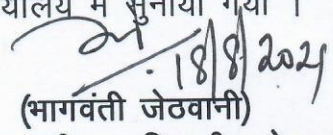 यालय में सुनाया गया ।
18/8/2021
(भागवंती जेठवानी)